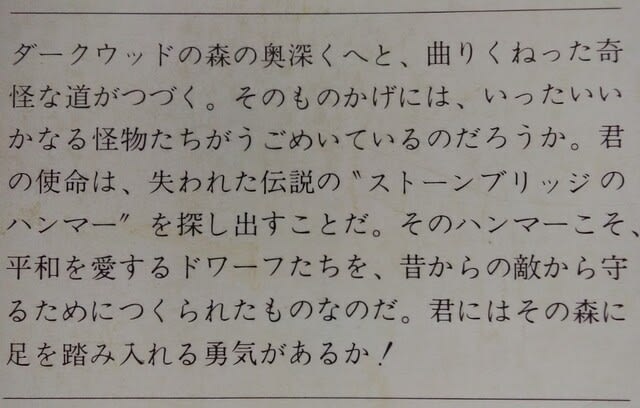 ダークウッドの森の奥深くへと、曲りくねった奇
怪な道がつづく。そのものかげには、いったいい
かなる怪物たちがうごめいているのだろうか。君
の使命は、失われた伝説の〝ストーンブリッジの
ハンマー〟を探し出すことだ。そのハンマーこそ、
平和を愛するドワーフたちを、昔からの敵から守
るためにつくられたものなのだ。君にはその森に
足を踏み入れる勇気があるか！